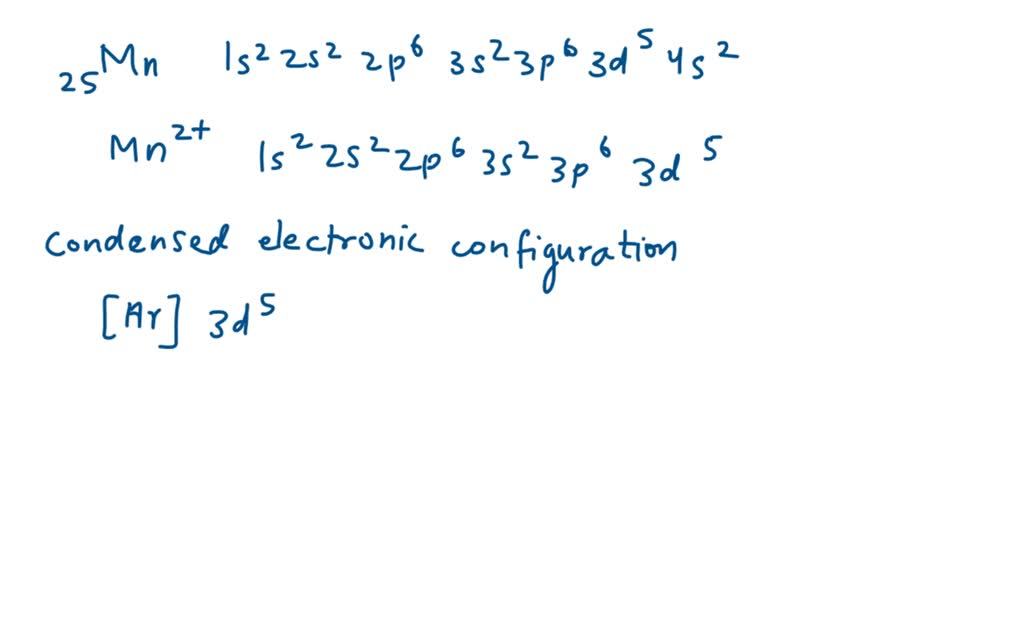 ₂₅Mn 1s² 2s² 2p⁶ 3s² 3p⁶ 3d⁵ 4s²
Mn²⁺ 1s² 2s² 2p⁶ 3s² 3p⁶ 3d⁵
condensed electronic configuration
[Ar] 3d⁵